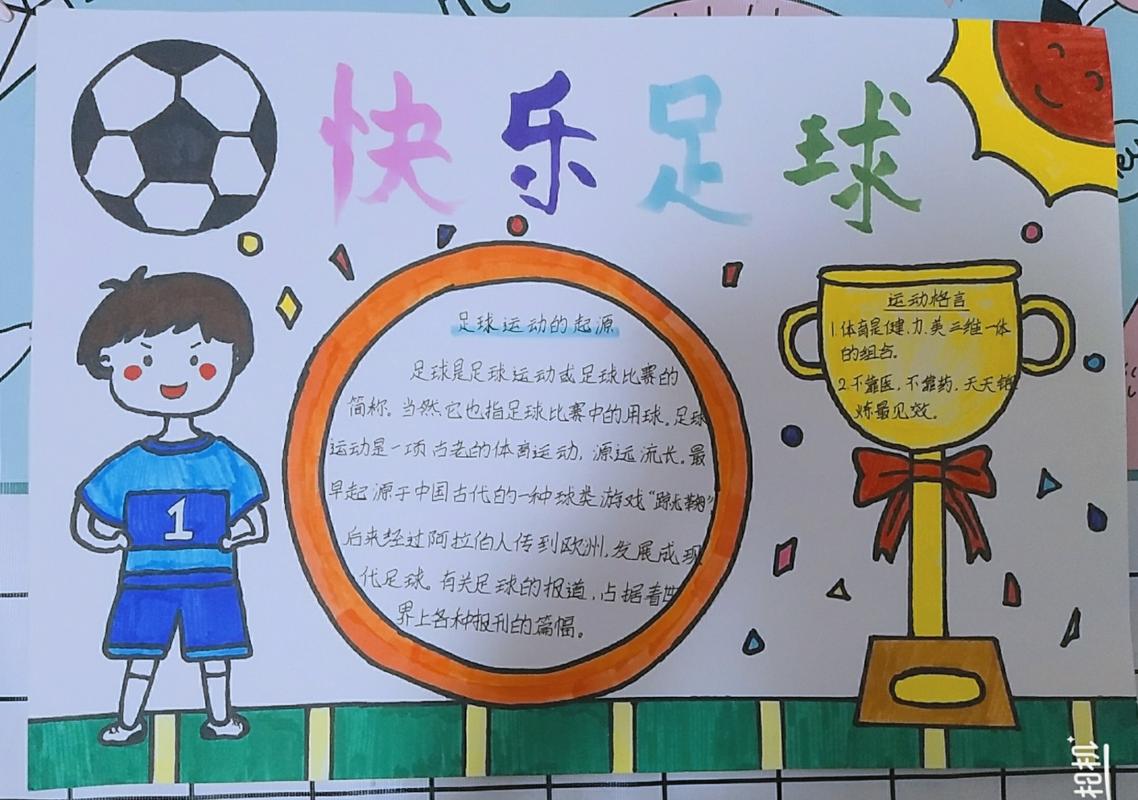 快乐足球
足球运动的起源
足球是足球运动或足球比赛的
简称。当然,它也指足球比赛中的用球。足球
运动是一项古老的体育运动,源远流长。最
早起源于中国古代的一种球类游戏“蹴鞠”
后来经过阿拉伯人传到欧洲,发展成现
代足球。有关足球的报道,占据着世
界上各种报刊的篇幅。
运动格言
1.体育是健、力、美三维一体
的组合。
2.不靠医,不靠药,天天锻
炼最见效。
1
相机